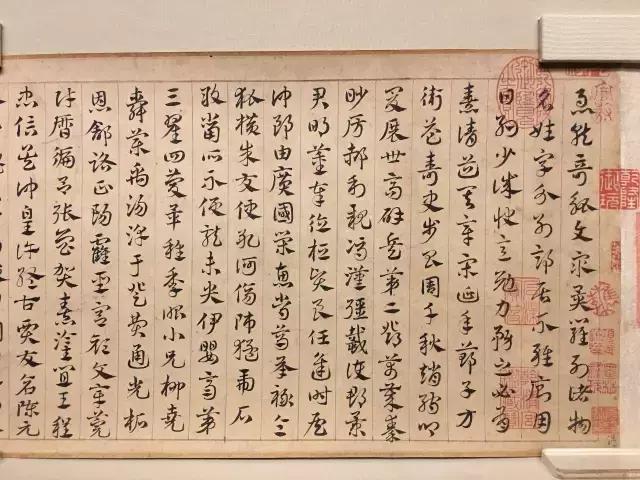 急就奇觚與衆異羅列諸物
名姓字分別部居不雜廁用
日約少誠快意勉力務之必有
憙請道其章宋延年鄭子方
衛益壽史步昌周千秋趙孺卿
爰展世高辟兵第二鄧萬歲秦
眇房郝利親馮漢彊戴護郡景
君明董奉德桓賢良任逢時侯
仲郎由廣國榮惠常烏承祿令
狐橫朱交便孔何傷師猛虎石
敢當所不侵龍未央伊嬰齊第
三翟回慶畢稚季昭小兄柳堯
舜樂禹湯淳于登費通光柘
恩舒路正陽霍聖宮顏文章莞
財曆偏呂張魯賀憙灌宜王程
忠信吳仲皇許終古賈友倉陳元